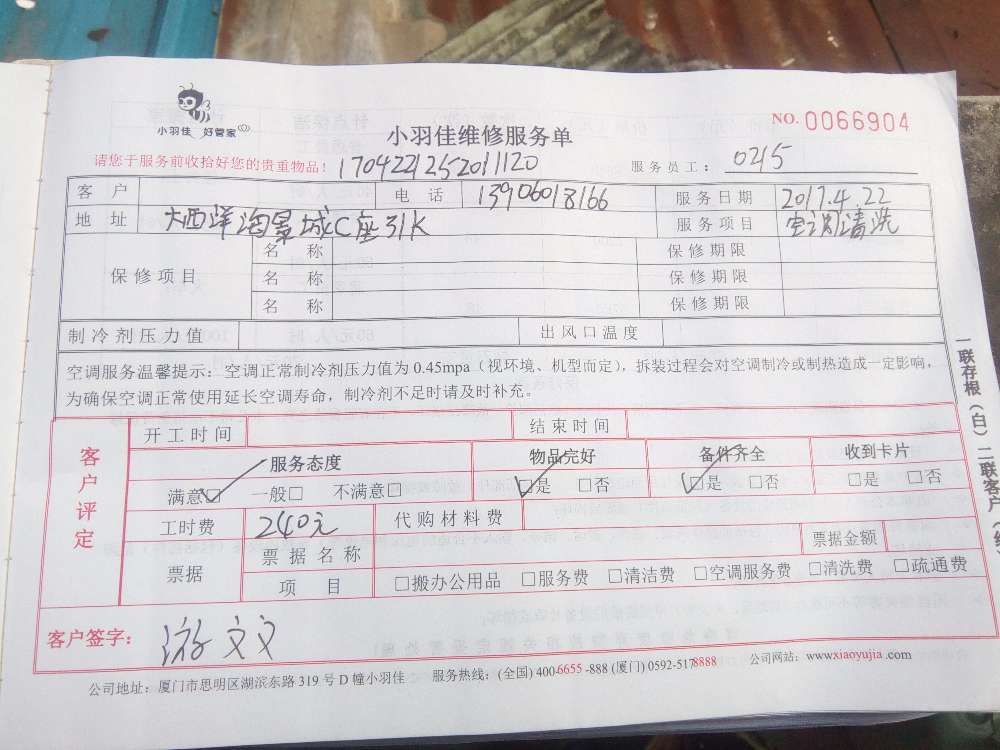 小羽佳 好管家
小羽佳维修服务单
NO. 0066904
请您于服务前收拾好您的贵重物品！ 1704221252011120 服务员工： 0215
客 户 电 话 13906018166 服务日期 2017.4.22
地 址 大西洋海景城C座31K 服务项目 空调清洗
保修项目
名 称 保修期限
名 称 保修期限
名 称 保修期限
制冷剂压力值 出风口温度
空调服务温馨提示：空调正常制冷剂压力值为 0.45mpa（视环境、机型而定），拆装过程会对空调制冷或制热造成一定影响，
为确保空调正常使用延长空调寿命，制冷剂不足时请及时补充。
客户评定
开工时间 结束时间
服务态度 物品完好 备件齐全 收到卡片
满意☑ 一般□ 不满意□ ☑是 □否 ☑是 □否 □是 □否
工时费 240元 代购材料费
票据 票据名称 票据金额
项 目 □搬办公用品 □服务费 □清洁费 □空调服务费 □清洗费 □疏通费
客户签字： 游文文
公司地址：厦门市思明区湖滨东路 319 号 D 幢小羽佳 服务热线：(全国) 400-6655-888 (厦门) 0592-5178888 公司网站：www.xiaoyujia.com
一联存根（白）二联客户（